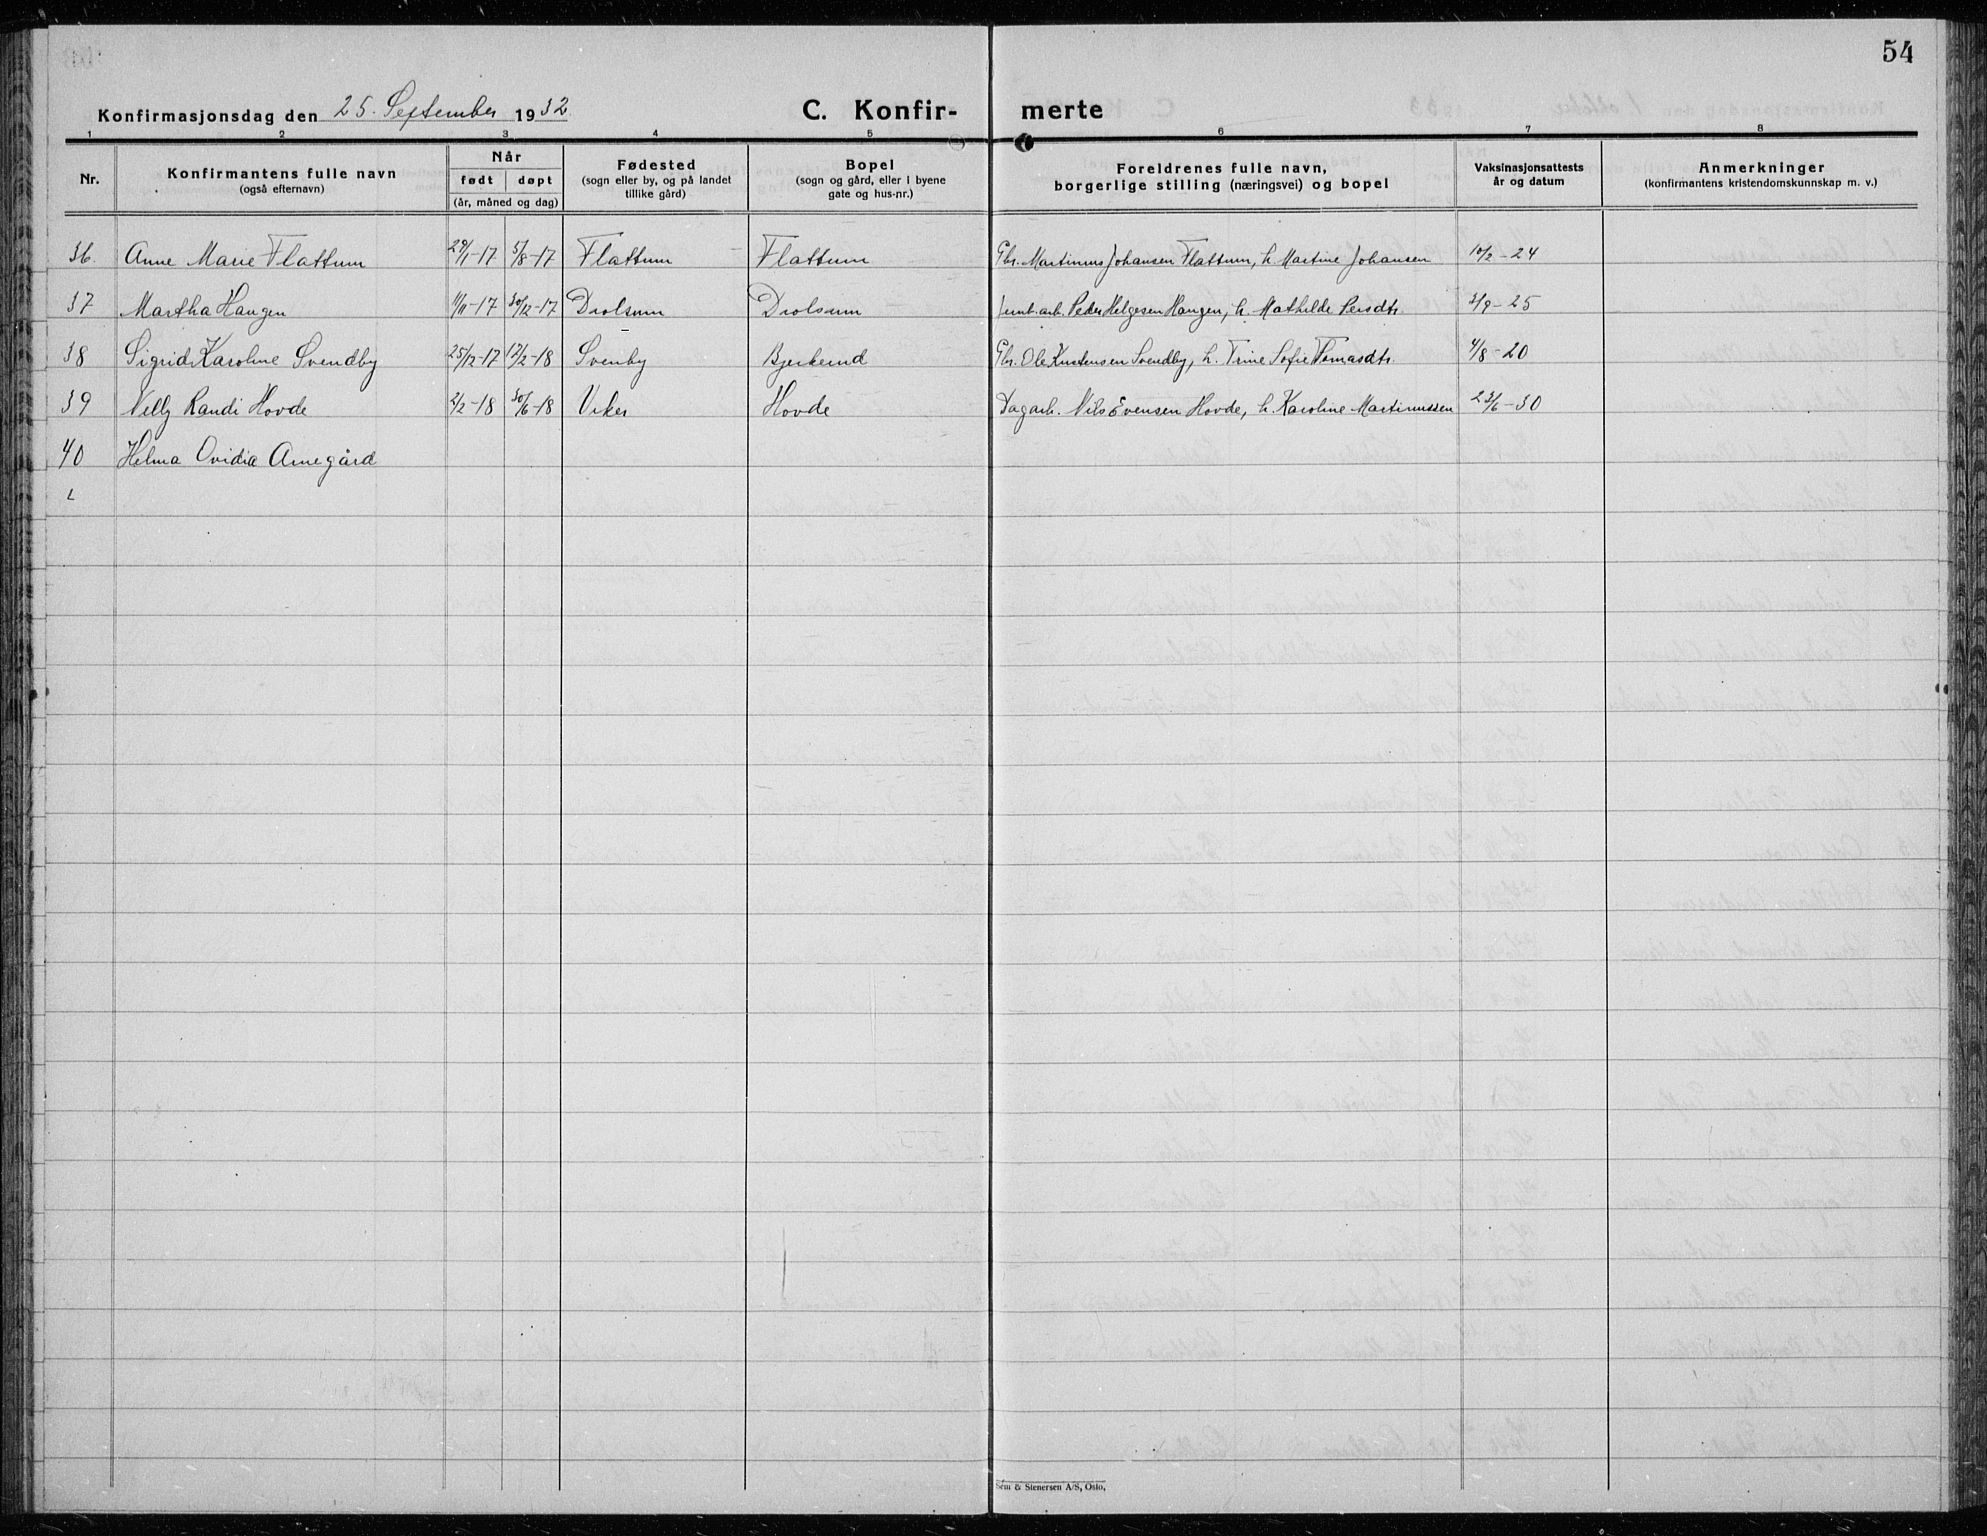 54
Konfirmasjonsdag den 25. September 1932
C. Konfir- merte
1 2 3 4 5 6 7 8
Nr.
Konfirmantens fulle navn
(også efternavn)
Når
født døpt
(år, måned og dag)
Fødested
(sogn eller by, og på landet
tillike gård)
Bopel
(sogn og gård, eller i byene
gate og hus-nr.)
Foreldrenes fulle navn,
borgerlige stilling (næringsvei) og bopel
Vaksinasjonsattests
år og datum
Anmerkninger
(konfirmantens kristendomskunnskap m. v.)
36. Anne Marie Flattum 29/1-17 5/8-17 Flattum Flattum Gbr. Martinus Johansen Flattum, h. Martine Johansen 10/2-24
37 Martha Haugen 11/11-17 30/12-17 Drolsum Drolsum Jernb.arb. Peder Helgesen Haugen, h. Mathilde Persdtr. 3/9-25
38 Sigrid Karoline Svendby 25/12-17 17/2-18 Svenby Bjerkend Gbr. Ole Svendby, h. Trine Sofie Tomasdtr. 4/8-20
39 Nelly Randi Hovde 2/2-18 30/6-18 Viker Hovde Dagarb. Nils Evensen Hovde, h. Karoline Martinussen 23/6-30
40 Helma Ovidia Arnegård
Sem & Stenersen A/S, Oslo,